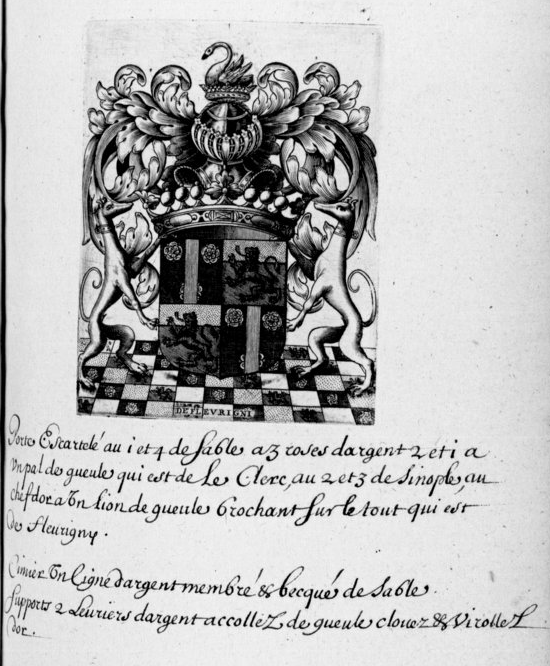 DE FLEVRIGNI
Porte Escartelé au i et 4 de sable a 3 roses dargent 2 et i a
Un pal de gueule qui est de Le Clerc, au 2 et 3 de sinople, au
chef dor a Un lion de gueule brochant sur le tout qui est
de fleurigny.
Cimier Un Cigne dargent membré & becqué de sable
supports 2 Leuriers dargent accollez de gueule clouez & virollez
dor.